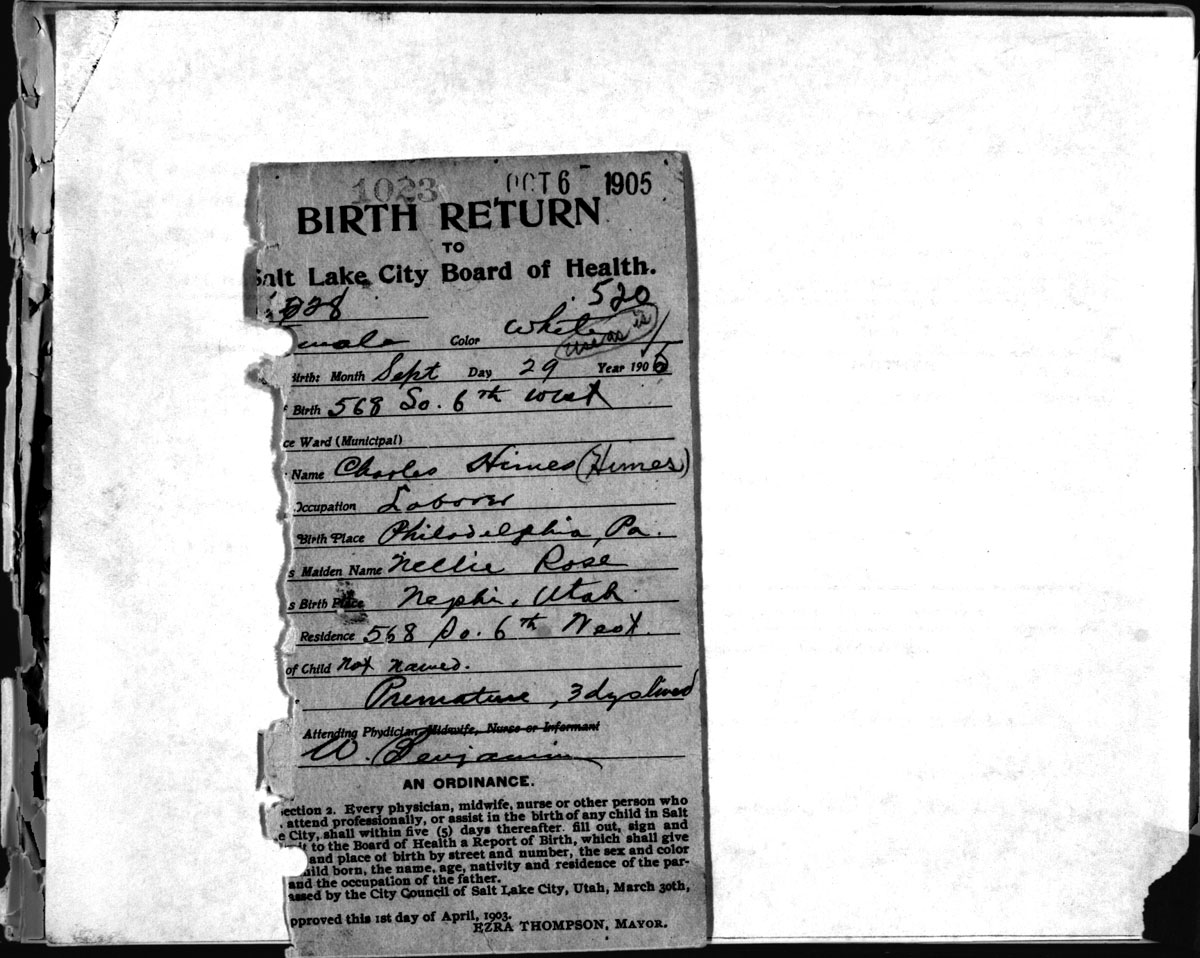 1023 OCT 6 - 1905
BIRTH RETURN
TO
Salt Lake City Board of Health.
228 520
emale Color White use as is
Birth: Month Sept Day 29 Year 1905
Birth 568 So. 6th West
ce Ward (Municipal)
Name Charles Himes (Himes)
Occupation Laborer
Birth Place Philadelphia, Pa.
s Maiden Name Nellie Rose
s Birth Place Nephi, Utah
Residence 568 So. 6th West.
of Child Not Named.
Premature, 3 dys lived
Attending Phydician, Midwife, Nurse or Informant
W. Benjamin
AN ORDINANCE.
ection 2. Every physician, midwife, nurse or other person who
attend professionally, or assist in the birth of any child in Salt
e City, shall within five (5) days thereafter fill out, sign and
it to the Board of Health a Report of Birth, which shall give
and place of birth by street and number, the sex and color
hild born, the name, age, nativity and residence of the par-
and the occupation of the father.
assed by the City Council of Salt Lake City, Utah, March 30th,
pproved this 1st day of April, 1903.
EZRA THOMPSON, MAYOR.